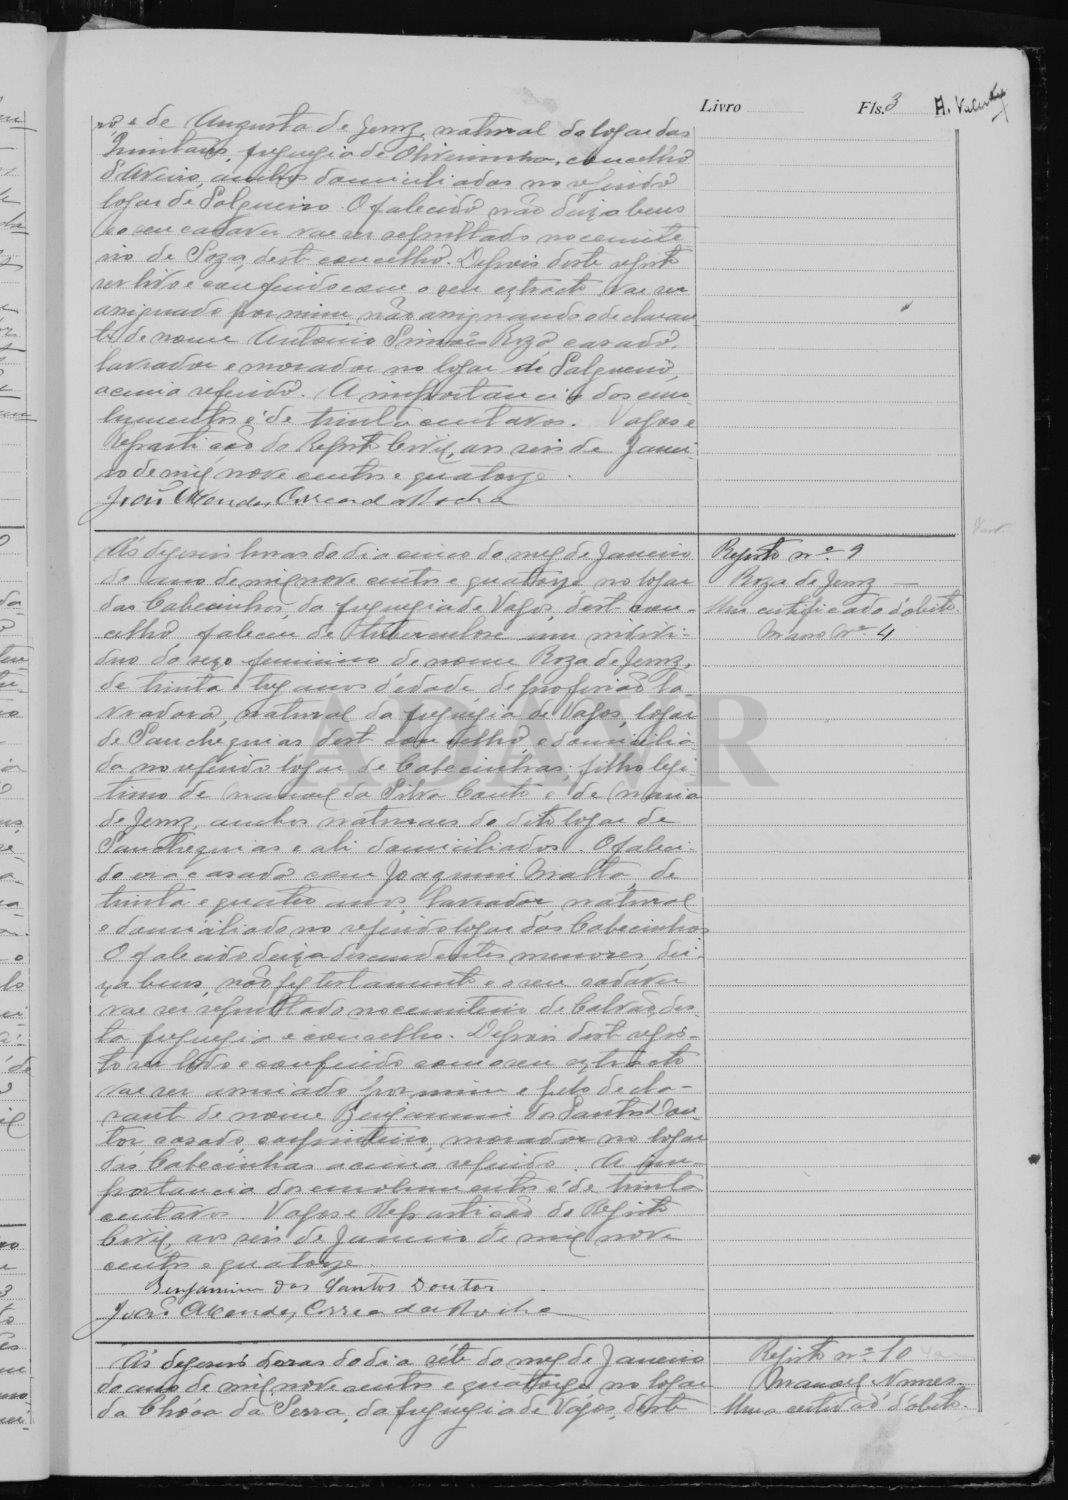 Livro Fls. 3 A. Valente
ro e de Augusta de Jesuz, natural do logar das
Quintans, freguezia de Oliveirinha, concelho
d'Aveiro, ambos domiciliados no referido
logar de Salgueiro. O falecido não deixa bens
e o seu cadaver vae ser sepultado no cemite
rio de Soza, deste concelho. Depois deste registo
ser lido e conferido com o seu extracto vae ser
assignado por mim, não assignando o declaran
te de nome Antonio Simões Rozo casado,
lavrador e morador no logar de Salgueiro,
acima referido. A importancia dos emo
lumentos é de trinta centavos. Vagos e
Repartição do Registo Civil, aos seis de Janei
ro de mil nove centos e quatorze.
João Mendes Correa da Rocha
Ás dezeseis horas do dia cinco do mez de Janeiro
do anno de mil nove centos e quatorze, no logar
das Cabecinhas, da freguezia de Vagos, deste con-
celho, faleceu de tuberculose um indivi-
duo do sexo feminino de nome Roza de Jesuz,
de trinta e trez anos d'edade, de profissão la-
vradora, natural da freguezia de Vagos, logar
de Sanchequias deste concelho, e domicilia
da no referido logar de Cabecinhas, filho legi-
timo de Manoel da Silva Canto e de Maria
de Jesuz, ambos naturaes do dito logar de
Sanchequias e ali domiciliados. O faleci-
do era casado com Joaquim Malta, de
trinta e quatro anos, lavrador, natural
e domiciliado no referido logar das Cabecinhas
O falecido deixa descendentes menores, dei-
xa bens, não fez testamento e o seu cadaver
vae ser sepultado no cemiterio de Calvão, des-
ta freguezia e concelho. Depois deste regis-
to ser lido e conferido com o seu extracto
vae ser assinado por mim e pelo decla-
rante de nome Benjamim dos Santos Dou-
tor, casado, carpinteiro, morador no logar
das Cabecinhas acima referido. A im-
portancia dos emolumentos é de trinta
centavos. Vagos e Repartição do Registo
Civil, aos seis de Janeiro de mil nove
centos e quatorze.
Benjamim dos Santos Doutor
João Mendes Correa da Rocha
Registo nº 9
Roza de Jesuz
Um certificado d'obito.
Maço Nº 4
Ás dezeseis horas do dia sete do mez de Janeiro
do anno de mil nove centos e quatorze, no logar
da Choca da Serra, da freguezia de Vagos, deste
Registo nº 10
Manoel Nunes
Um certificado d'obito.
ADAVR